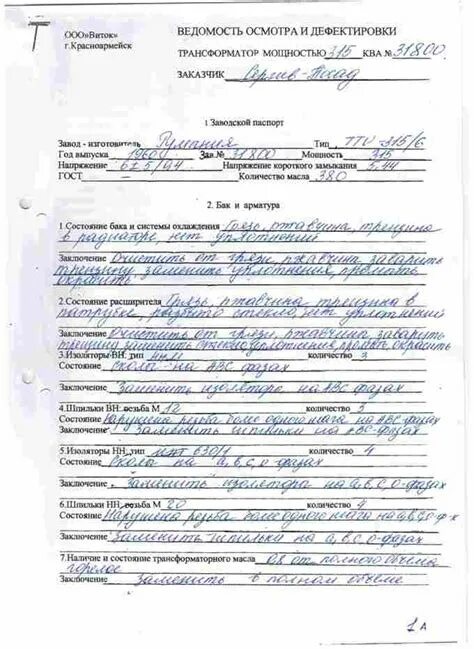 ООО»Виток»
г.Красноармейск
ВЕДОМОСТЬ ОСМОТРА И ДЕФЕКТИРОВКИ
ТРАНСФОРМАТОР МОЩНОСТЬЮ 315 КВА № 31800
ЗАКАЗЧИК Сергиев-Посад
1 Заводской паспорт
Завод - изготовитель Румыния Тип ТТU 315/6
Год выпуска 1960 Зав.№ 31800 Мощность 315
Напряжение Напряжение короткого замыкания 5.44
ГОСТ — Количество масла 380
2. Бак и арматура
1.Состояние бака и системы охлаждения Грязь, ржавчина, трещина
в радиаторе, нет уплотнений
Заключение Очистить от грязи, ржавчина, заварить
трещину, заменить уплотнения, промыть
окрасить
2.Состояние расширителя Грязь, ржавчина трещина в
патрубке, разбито стекло, нет уплотнений
Заключение Очистить от грязи, ржавчина, заварить
трещину заменить стекло, уплотнения, окрасить
3.Изоляторы ВН, тип количество 3
Состояние сколы на АВС фазах
Заключение Заменить изолятора на АВС фазах
4.Шпильки ВН резьба М 12 количество 3
Состояние Нарушена резьба более одного вітка на АВС-фазах
Заключение Заменить шпильки на АВС-фазах
5.Изоляторы НН, тип количество 4
Состояние Сколы на а, в, с, о-фазах
Заключение Заменить изолятора на а, в, с, о-фазах
6.Шпильки НН резьба М 20 количество 4
Состояние Нарушена резьба более одного на а, в, с, о-ф-х
Заключение Заменить шпильки на а, в, с, о-фазах
7.Наличие и состояние трансформаторного масла от полного объема
горелое
Заключение Заменить в полном объеме
1А